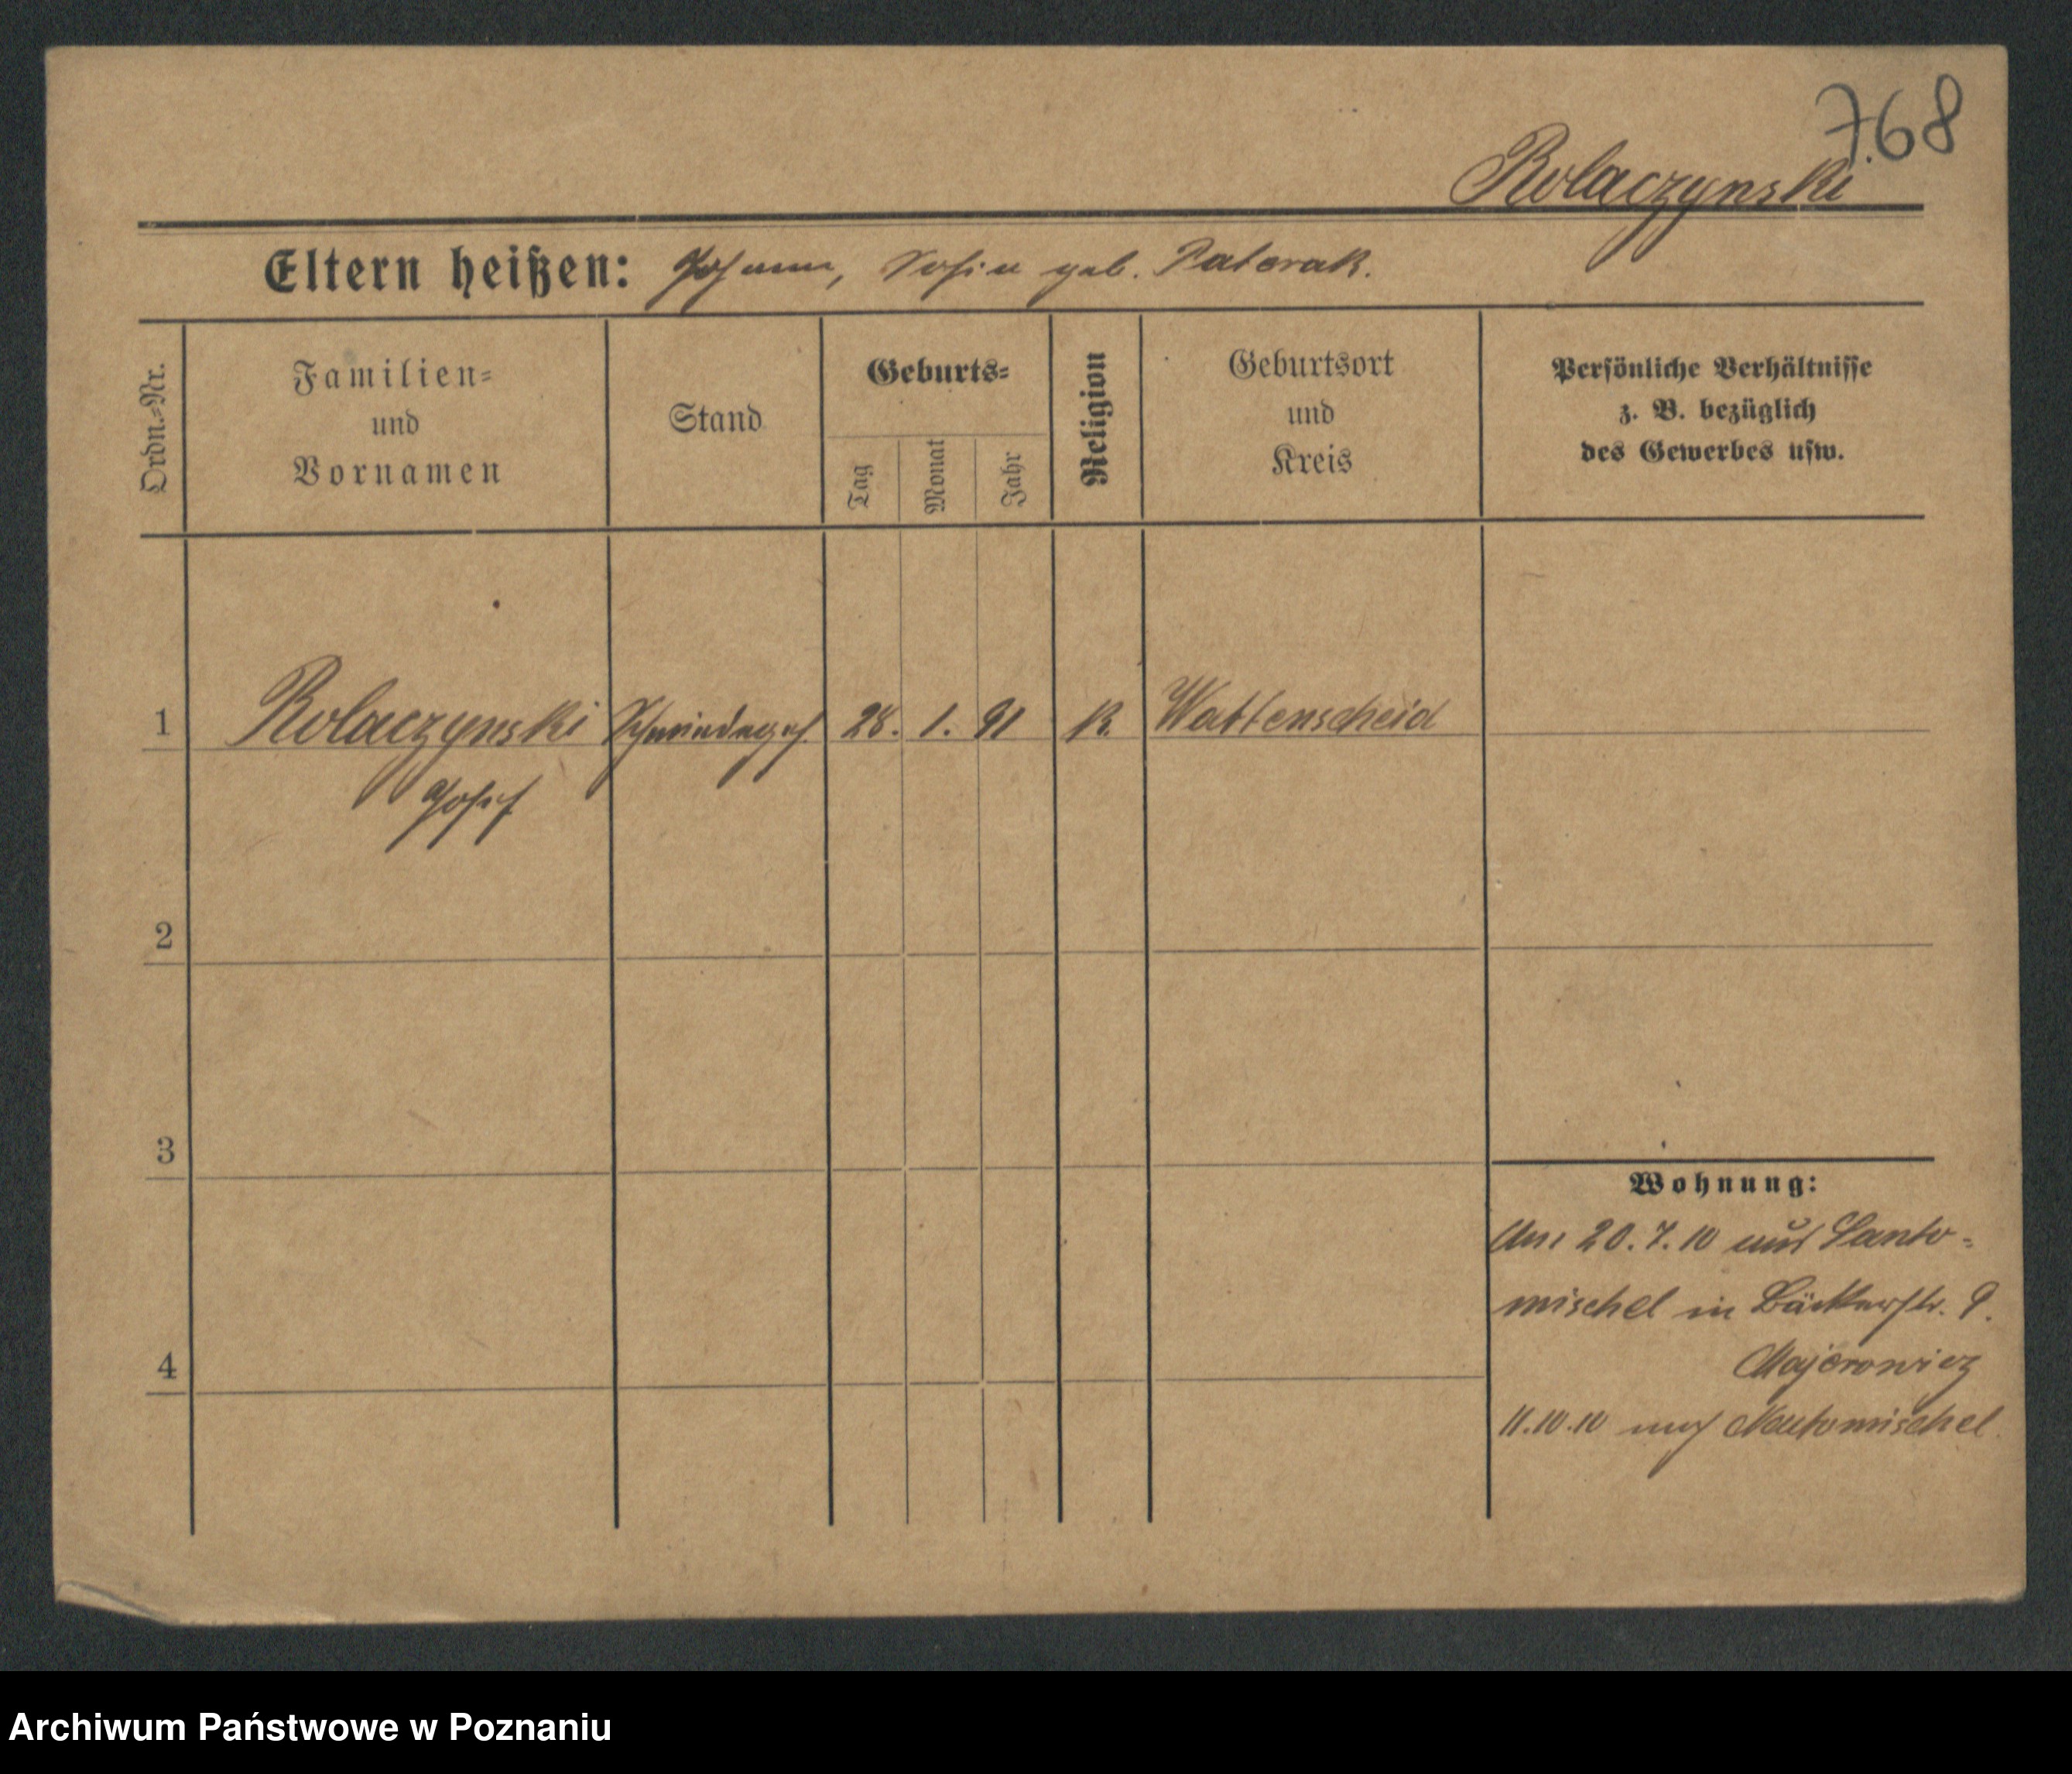 768
Rolaczynski
Eltern heißen: Johann, Sofia geb. Paterak.
Ordn.-Nr.
Familien-
und
Vornamen
Stand
Geburts-
Tag
Monat
Jahr
Religion
Geburtsort
und
Kreis
Persönliche Verhältnisse
z. B. bezüglich
des Gewerbes usw.
1 Rolaczynski Schmiedeges. 28. 1. 91 K. Wattenscheid
Josef
2
3
4
Wohnung:
Am 20.7.10 aus Santo-
mischel in Bäckerstr. 9.
Majerowicz
11.10.10 nach Neutomischel.
Archiwum Państwowe w Poznaniu